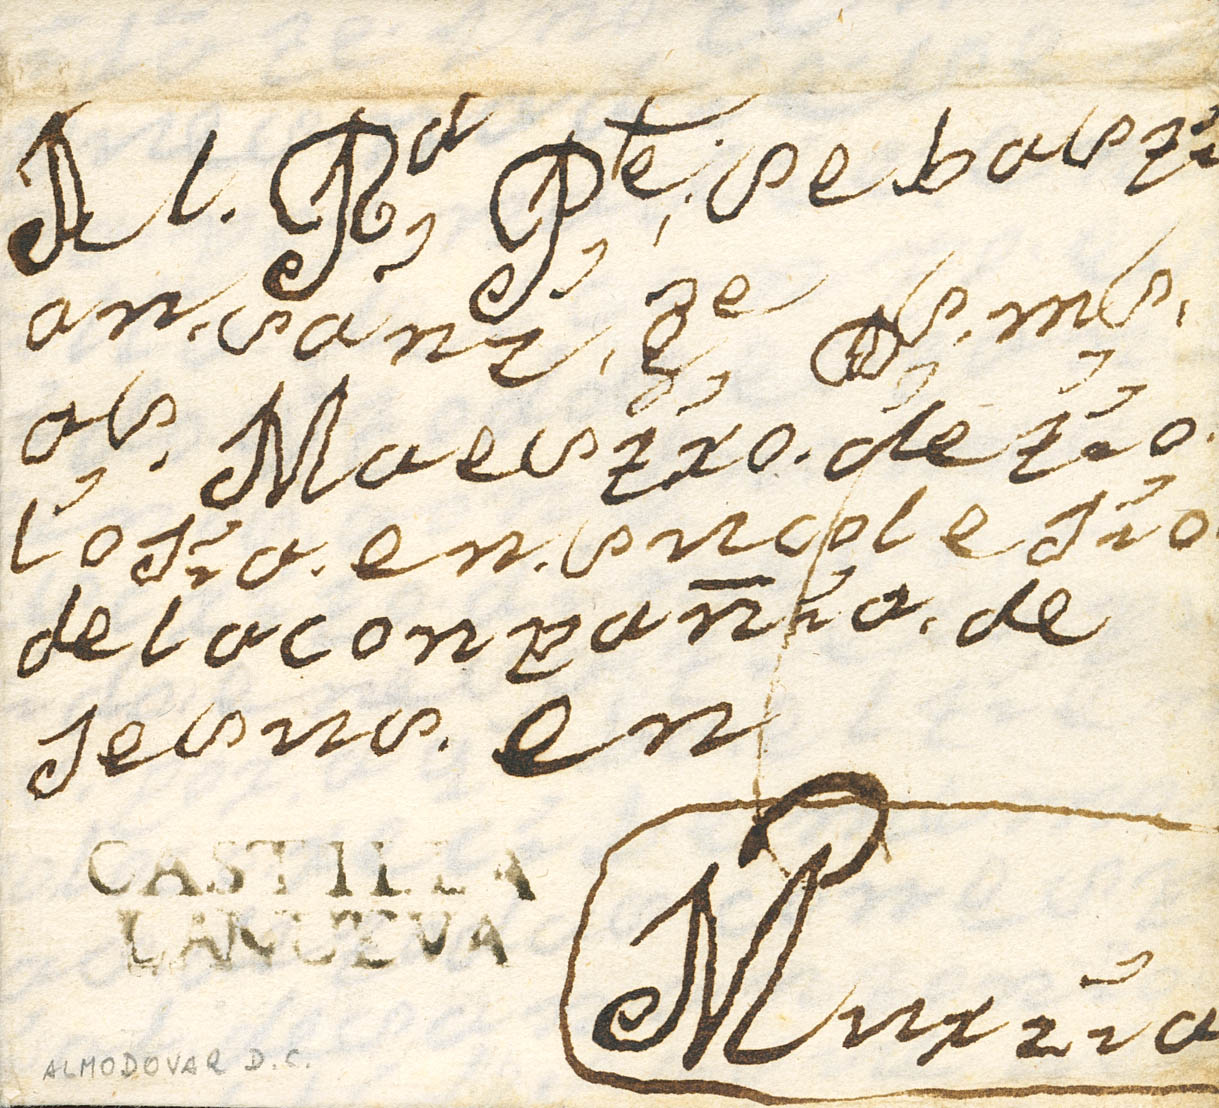 Al. Rd Pte. sebasti
an. sanz, ge Ds. ms.
as. Maestro. de tio.
lojia. en. su colejio.
delaconpañia. de
jesus. en
Murzia
CASTILLA
LANUEVA
ALMODOVAR D.C.